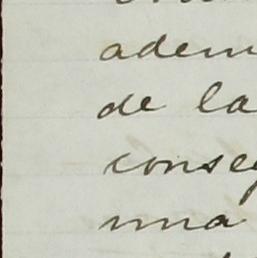 adem
de la
conseg
una